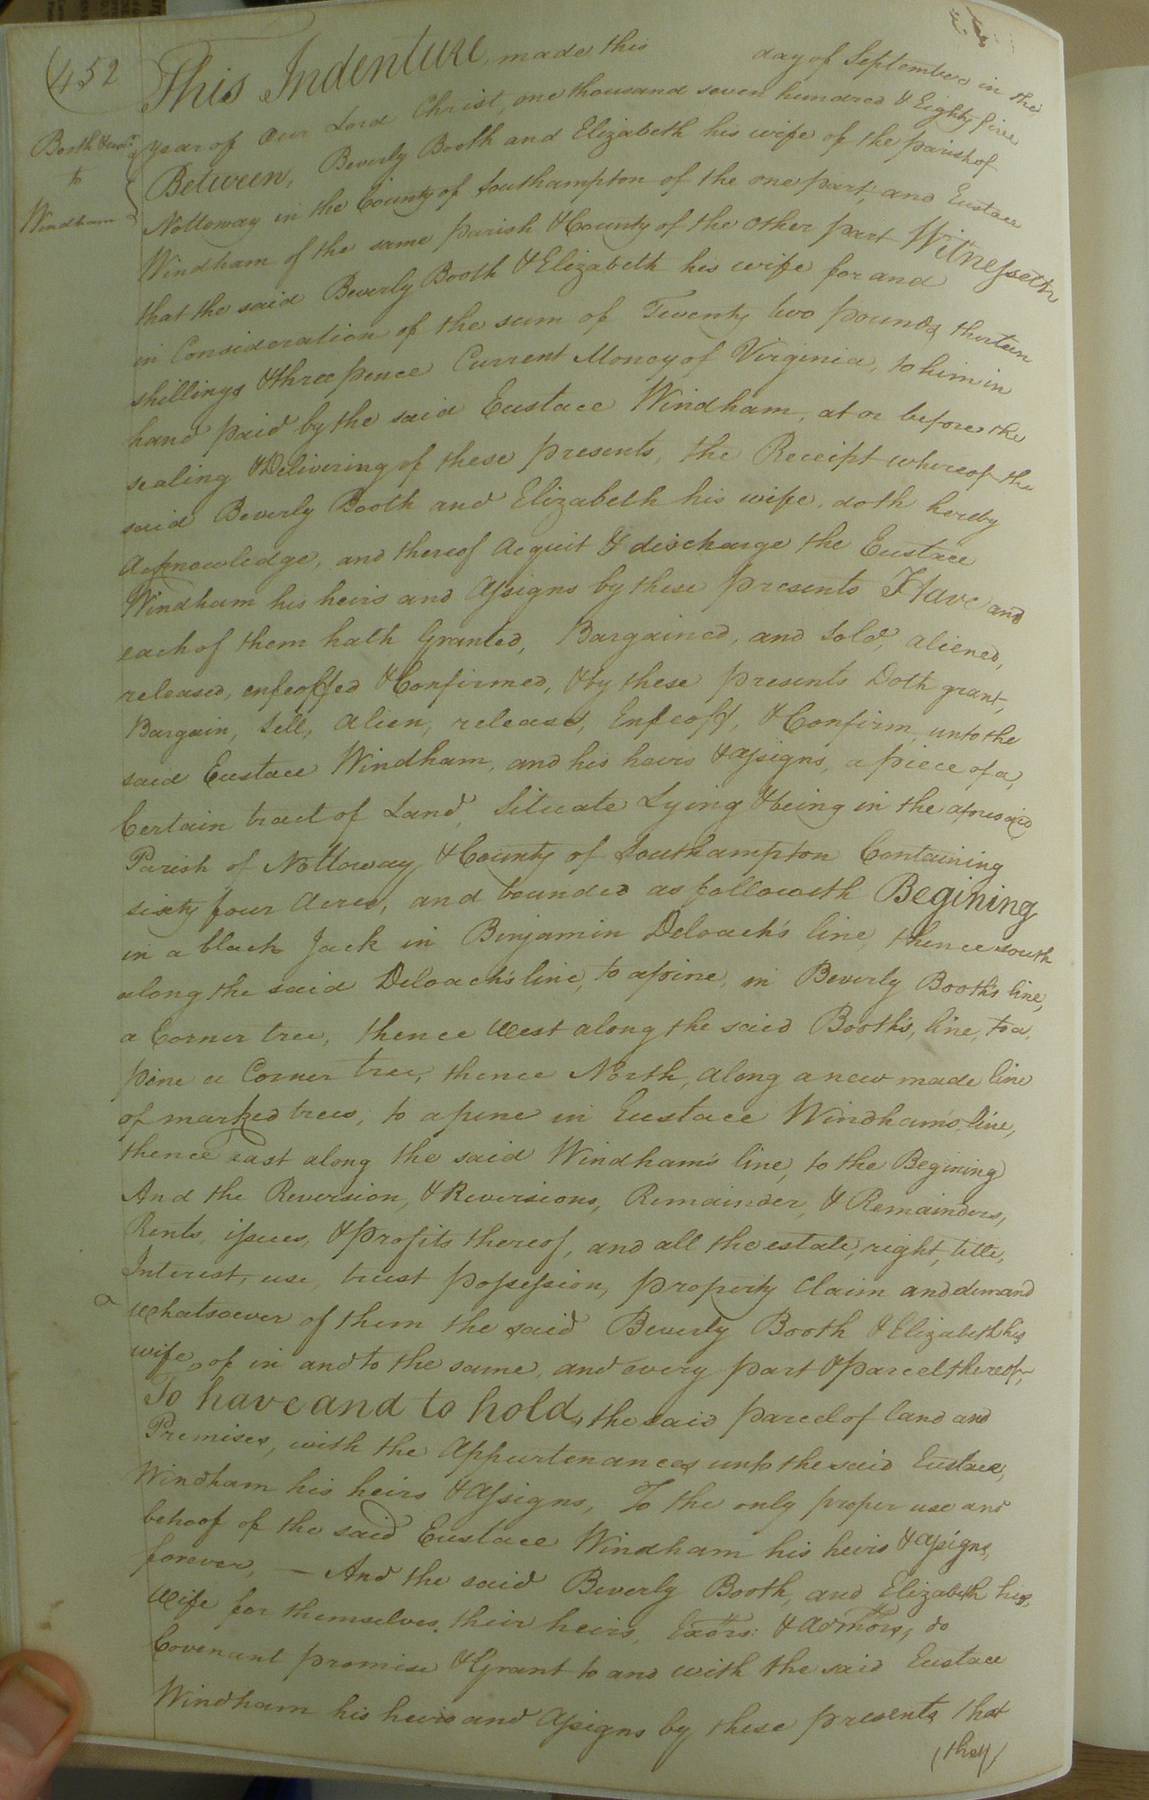 452
Booth &
to
Windham
This Indenture, made this day of September in the
year of Our Lord Christ, one thousand seven hundred & Eighty five
Between, Beverly Booth and Elizabeth his wife of the parish of
Nottoway in the County of Southampton of the one part, and Eustace
Windham of the same parish & County of the other part Witnesseth
that the said Beverly Booth & Elizabeth his wife for and
in Consideration of the sum of Twenty two pounds, thirteen
shillings & three pence Current Money of Virginia, to him in
hand paid by the said Eustace Windham, at or before the
sealing & Delivering of these presents, the Receipt whereof the
said Beverly Booth and Elizabeth his wife, doth hereby
Acknowledge, and thereof Acquit & discharge the Eustace
Windham his heirs and Assigns by these presents Have and
each of them hath Granted, Bargained, and Sold, aliened,
released, enfeoffed & Confirmed, & by these presents Doth grant,
Bargain, Sell, Alien, release, Enfeoff, & Confirm unto the
said Eustace Windham, and his heirs & assigns, a piece of a,
Certain tract of Land, Situate Lying & being in the aforesaid
Parish of Nottoway & County of Southampton Containing
sixty four Acres, and bounded as followeth Begining
in a black Jack in Binjamin Deloach's line, thence south
along the said Deloach's line, to a pine, in Beverly Booth's line,
a Corner tree, thence West along the said Booth's, line, to a,
pine a Corner tree, thence North, along a new made line
of marked trees, to a pine in Eustace Windham's line,
thence east along the said Windham's line, to the Begining
And the Reversion, & Reversions, Remainder, & Remainders,
Rents, issues, & profits thereof, and all the estate, right, title,
Interest, use, trust possession, property Claim and demand
whatsoever of them the said Beverly Booth & Elizabeth his
wife, of in and to the same, and every part & parcel thereof,
To have and to hold, the said parcel of land and
Premises, with the Appurtenances unto the said Eustace,
Windham his heirs & Assigns, To the only proper use and
behoof of the said Eustace Windham his heirs & assigns,
forever, — And the said Beverly Booth, and Elizabeth his,
Wife for themselves, their heirs, Exors: & Admors, do
Covenant promise & Grant to and with the said Eustace
Windham his heirs and Assigns by these presents, that
(they